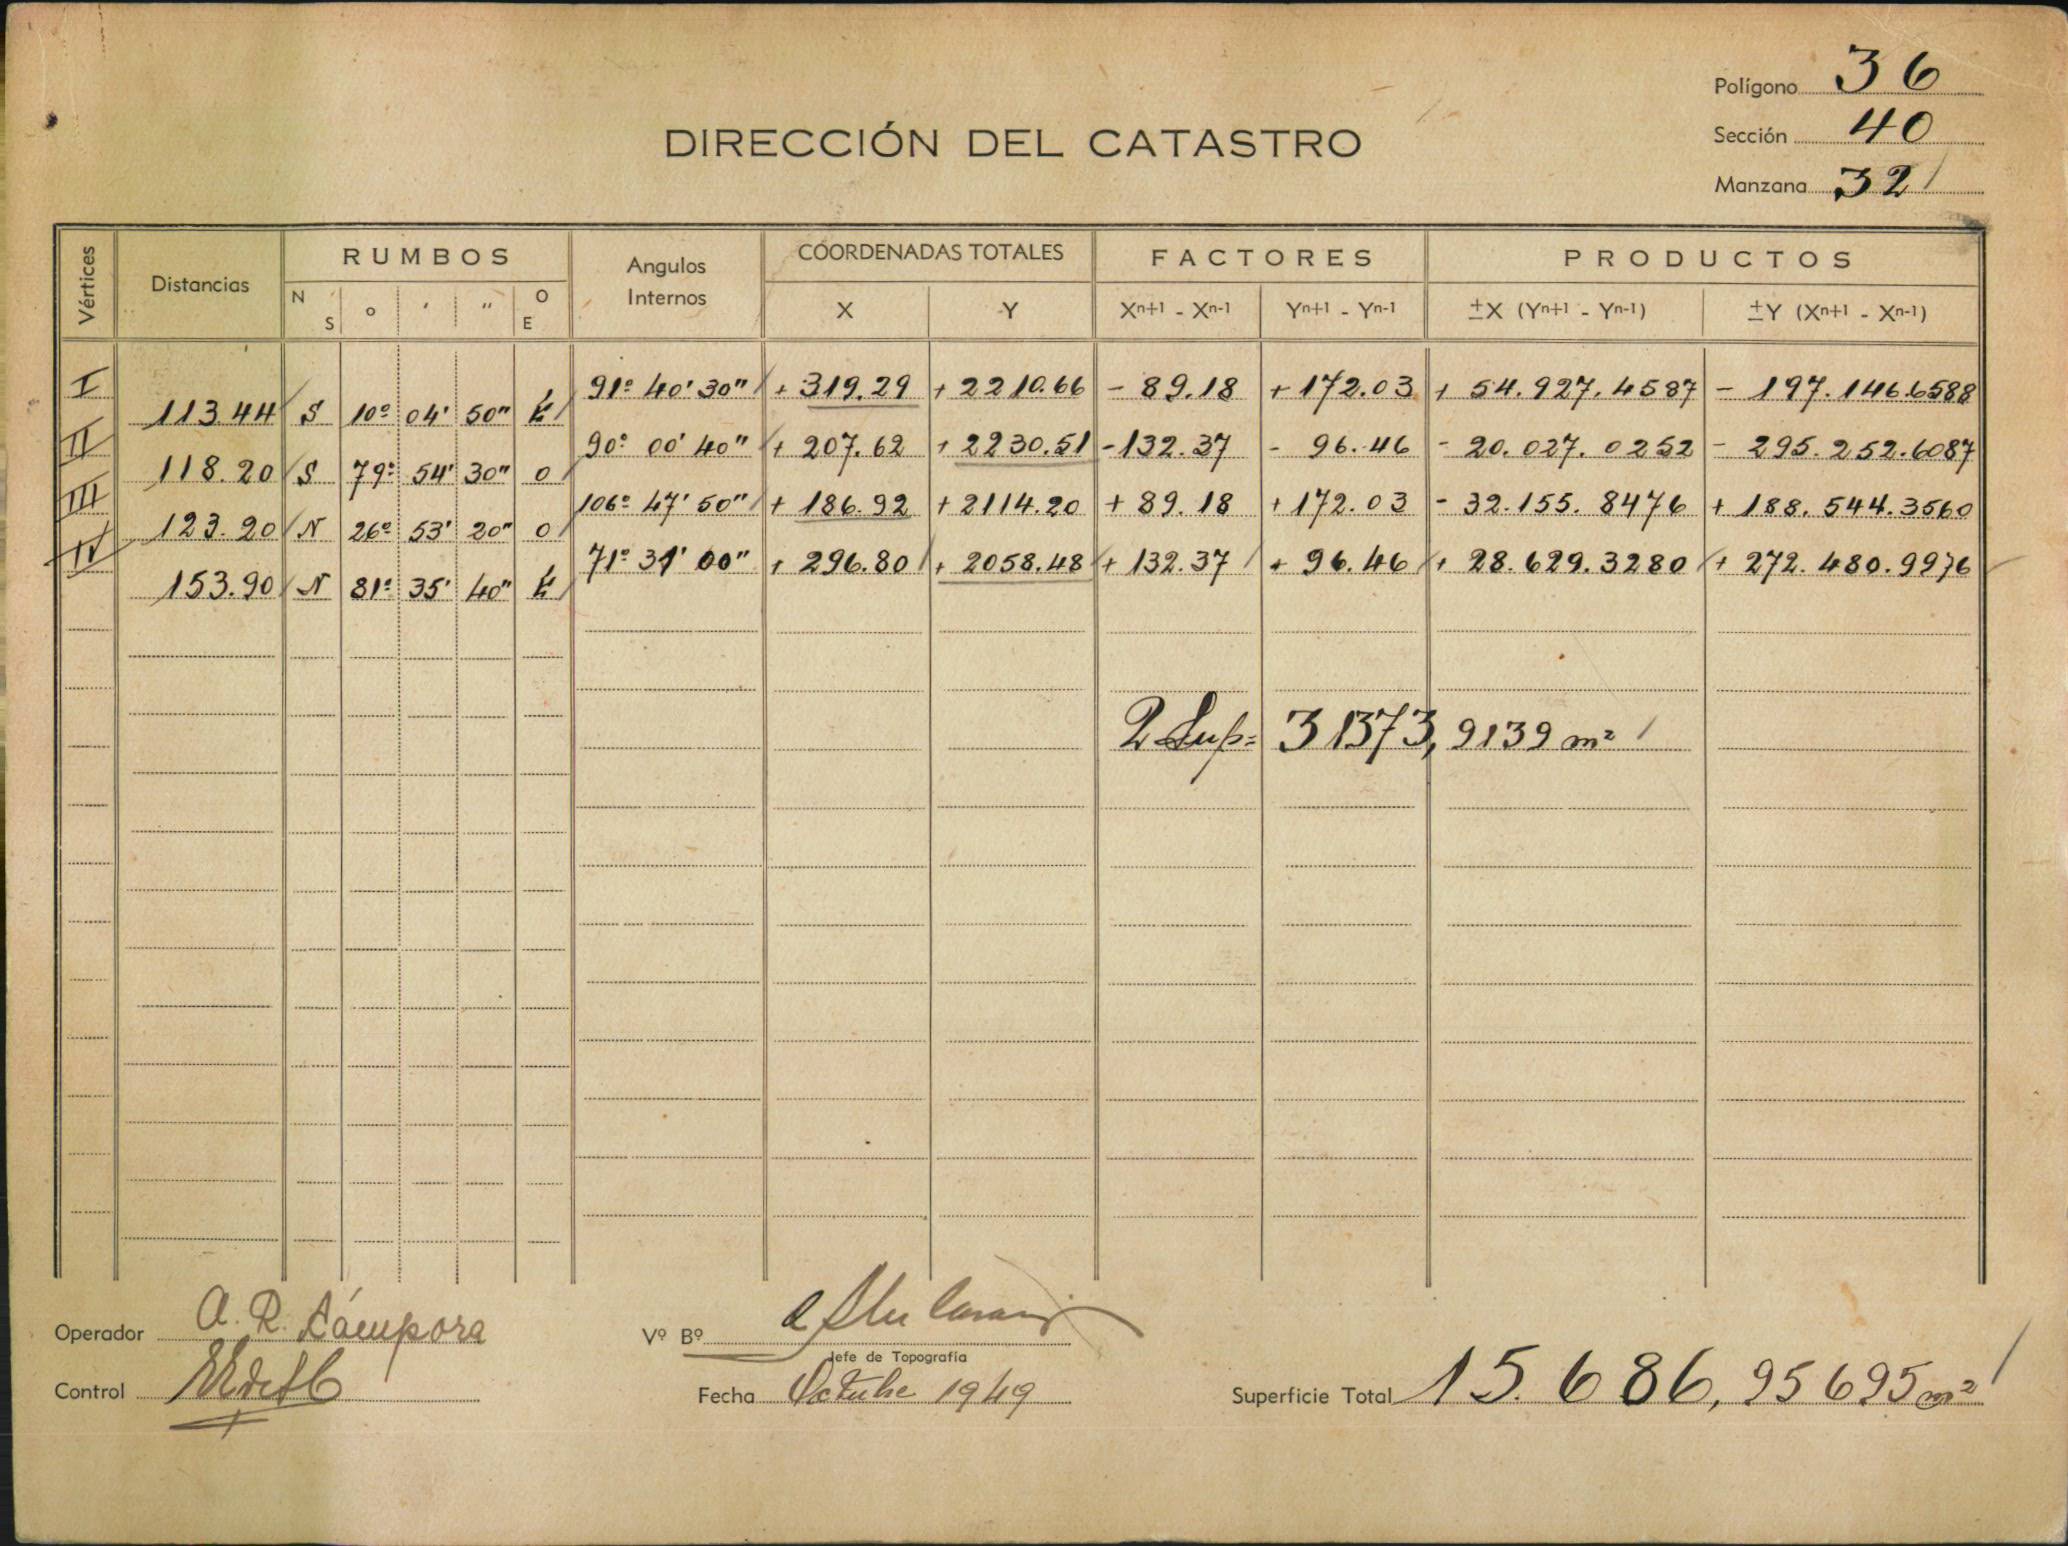 Polígono 36
DIRECCIÓN DEL CATASTRO
Sección 40
Manzana 32
Vértices Distancias RUMBOS Angulos Internos COORDENADAS TOTALES FACTORES PRODUCTOS
N S ° ' " O E X Y Xn+1 - Xn-1 Yn+1 - Yn-1 ±X (Yn+1 - Yn-1) ±Y (Xn+1 - Xn-1)
I 91° 40' 30" + 319.29 + 2210.66 - 89.18 + 172.03 + 54.927.4587 - 197.146.6588
113.44 S 10° 04' 50" E
II 90° 00' 40" + 207.62 + 2230.51 - 132.37 - 96.46 - 20.027.0252 - 295.252.6087
118.20 S 79° 54' 30" O
III 106° 47' 50" + 186.92 + 2114.20 + 89.18 + 172.03 - 32.155.8476 + 188.544.3560
123.20 N 26° 53' 20" O
IV 71° 31' 00" + 296.80 + 2058.48 + 132.37 + 96.46 + 28.629.3280 + 272.480.9976
153.90 N 81° 35' 40" E
2 Sup= 31373,9139 m²
Operador A. R. Lámpora
Vº Bº
Jefe de Topografía
Control
Fecha Octubre 1949
Superficie Total 15.686,95695 m²